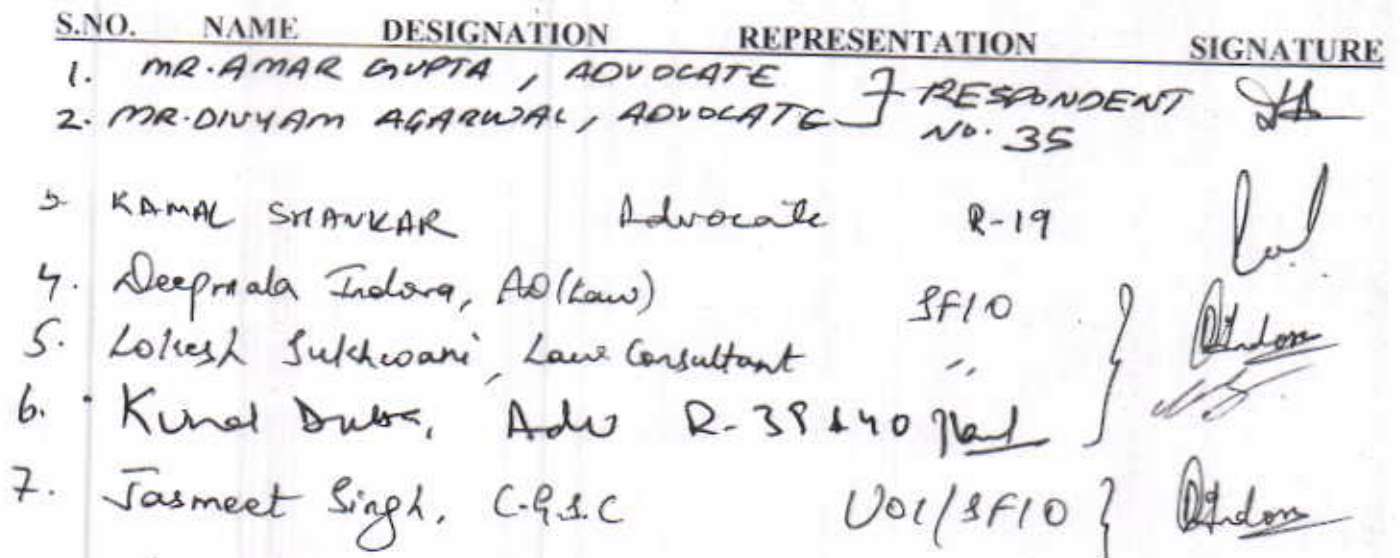 S.NO. NAME DESIGNATION REPRESENTATION SIGNATURE
1. MR. AMAR GUPTA, ADVOCATE
2. MR. DIVYAM AGARWAL, ADVOCATE } RESPONDENT No. 35
3. KAMAL SHANKAR Advocate R-19
4. Deepmala Indora, AD (Law) SFIO
5. Lokesh Sukhwani, Law Consultant "
6. Kunal, Adv R-39 & 40
7. Jasmeet Singh, C.G.S.C UOI/SFIO } DIndora